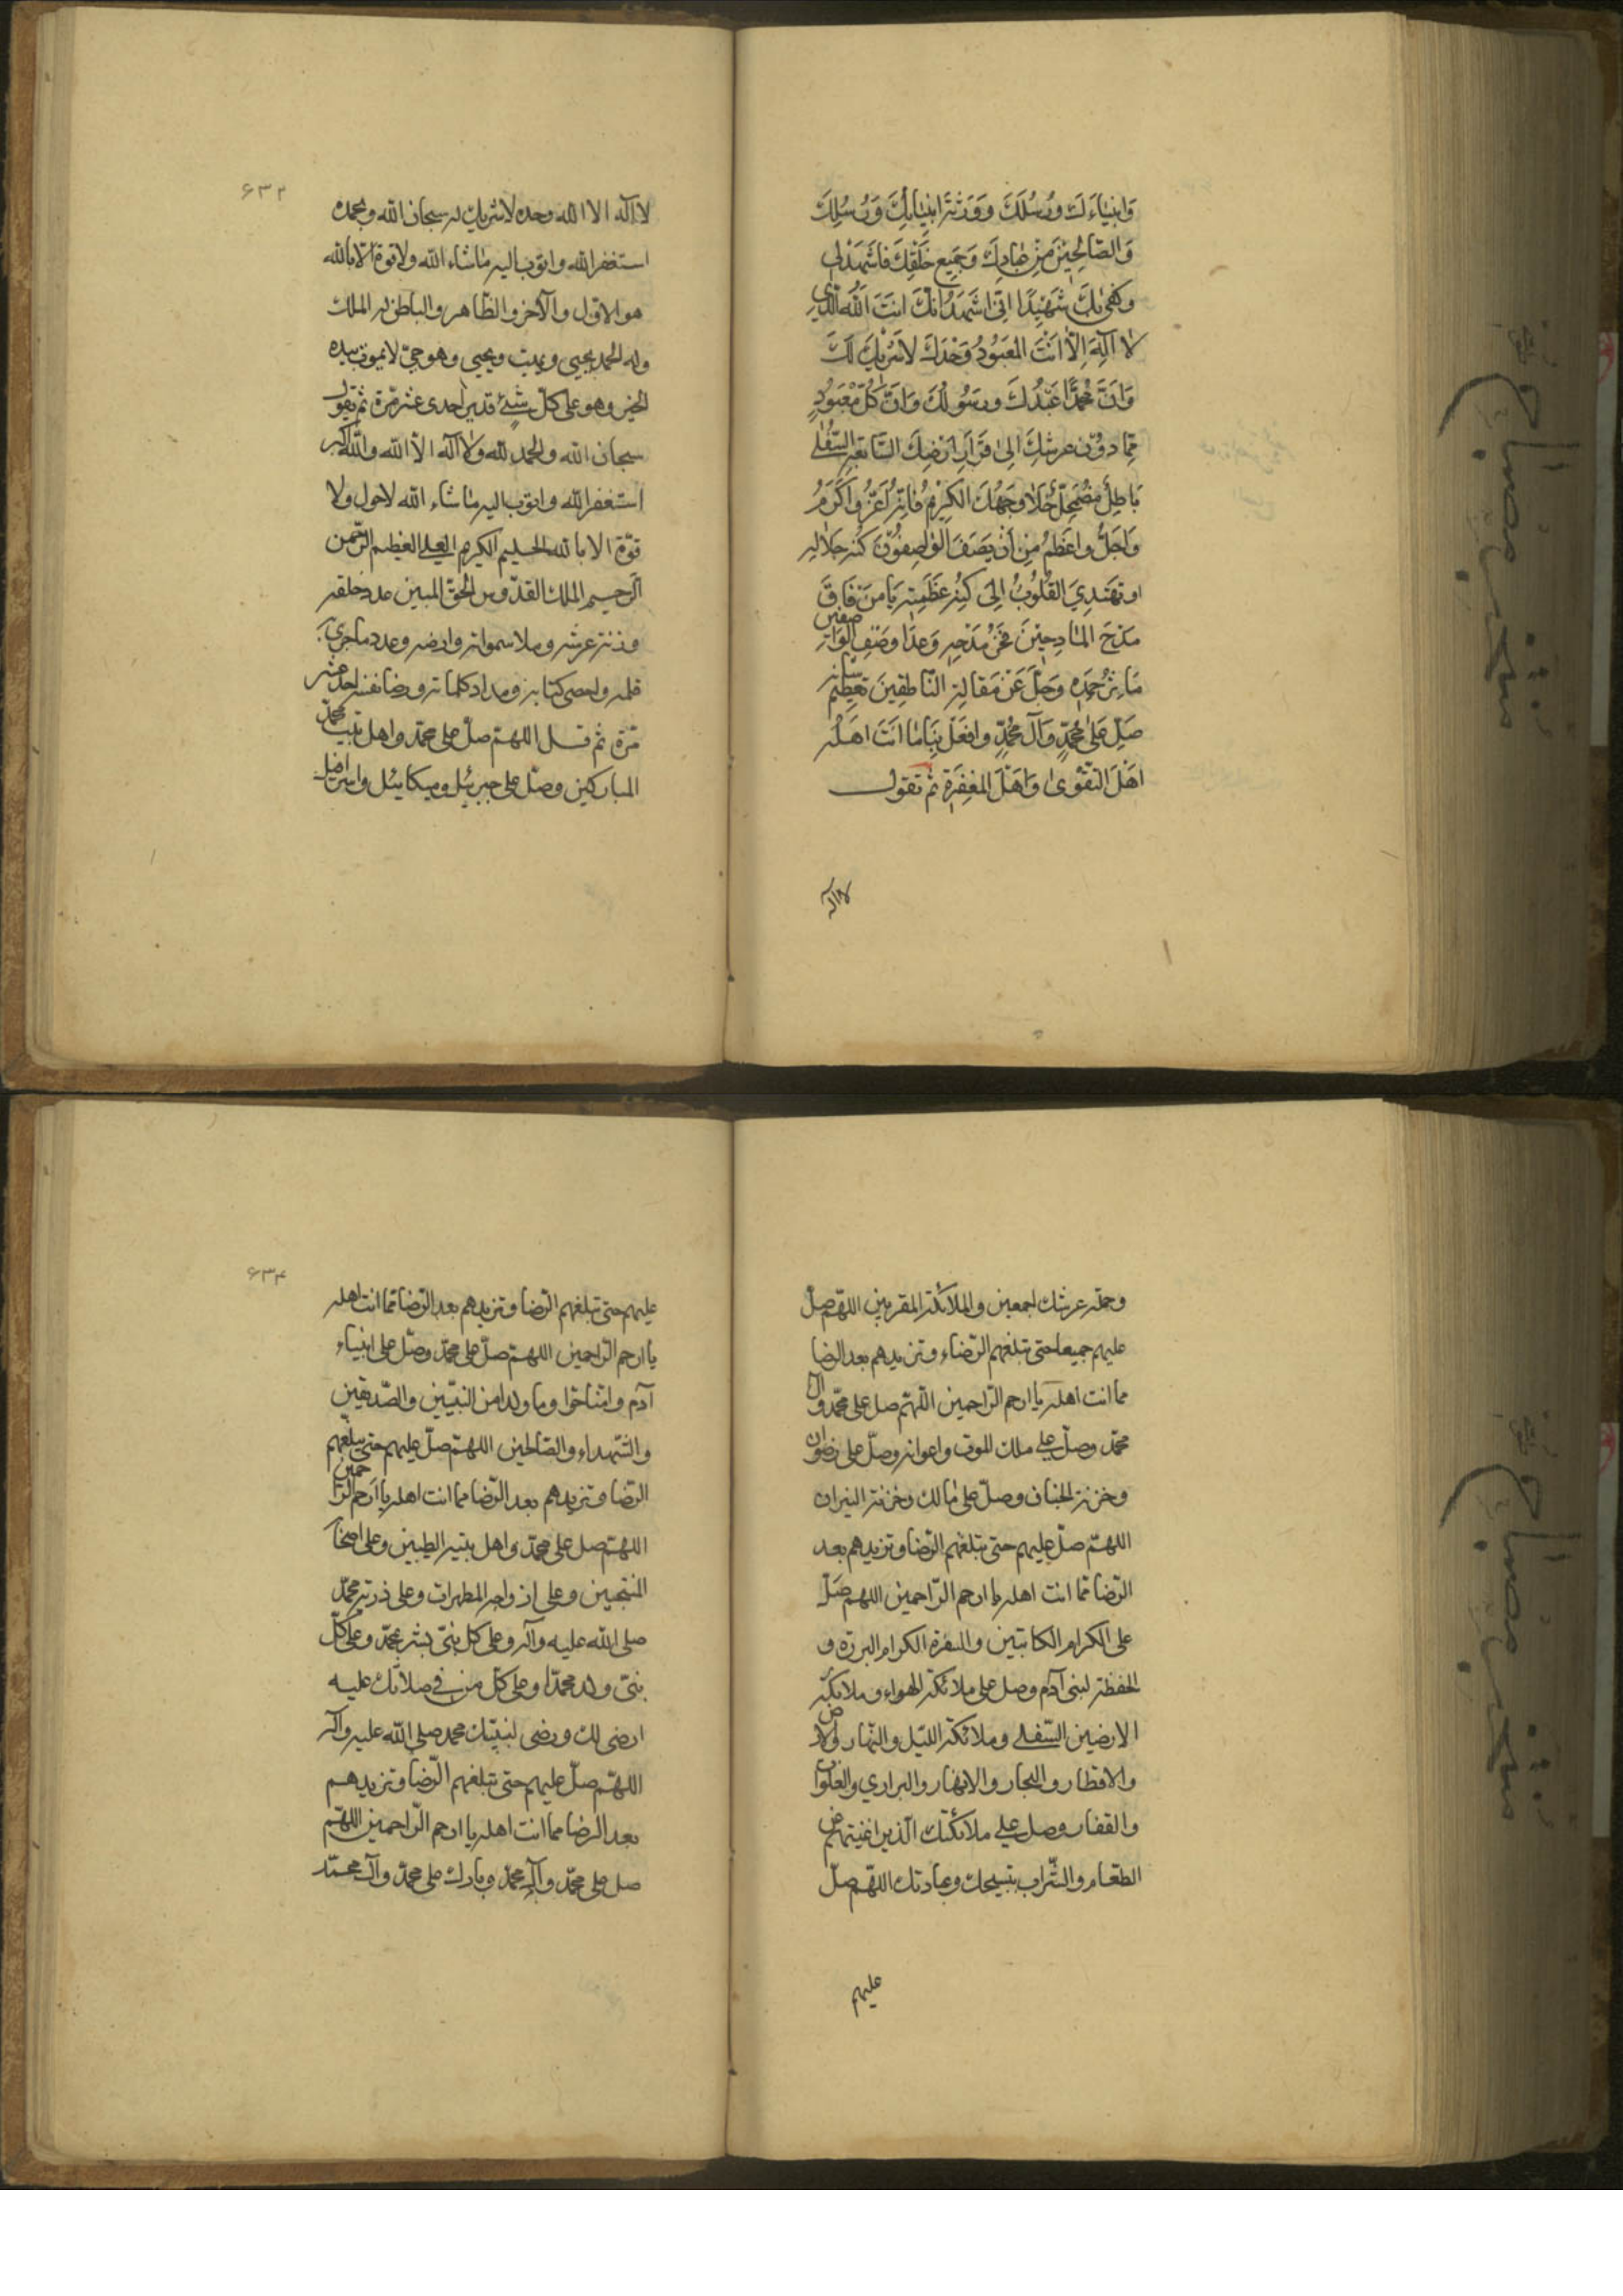 وَانبيٰاءَكَ ورُسُلَكَ وَوَرَثَةَ انبيٰائِكَ وَرُسُلِكَ
وَالصّالِحيٖنَ مِنْ عِبادِكَ وَجَميعِ خَلْقِكَ فاشْهَدْ لي
وكَفىٰ بِكَ شَهيٖدًا انّي اشهَدُ انّكَ انتَ اللّٰه الّذي
لا الٰهَ الّا انتَ المعَبُودُ وَحْدَكَ لاشَريكَ لَكَ
وَانّ محمّدًا عَبْدُكَ ورسَوُلُكَ وَانّ كُلّ مَعْبَودٍ
ممّا دوُن عرشِكَ الىٰ قَرارِ ارَضِكَ السّابعَةِ السُّفْلٰى
بَاطِلٌ مضْمَحِلٌّ خَلا وَجهُكَ الكَريٖمِ فانّه اعَزّ واكَرمُ
وَاجَلُّ واعَظمُ مِن أنْ يَصفَ الوٰاصِفوُنَ كُنهَ جَلالِهِ
او تَهتَدِيَ القُلُوبُ الى كُنهِ عَظَمتِهِ يَا مَن فَاقَ
مَدْحَ المٰادِحيٖنَ فَخرُ مَدْحِهِ وَعدٰا وصَفَ الوٰاصفين
مَآثِرُ حَمْدِهِ وَجَلّ عَن مَقالةِ النّاطِقينَ تعَظيمُ شأنه
صَلّ عَلىٰ محُمّدٍ وَآل محُمّدٍ وافعَلْ بِنَا مٰا انَتَ اهَلُه
اهَلَ التقّوىٰ وَاهَلَ المغَفِرَةِ ثمّ تقول
لا اله
۶۳۲
لا اله الا الله وحده لا شريك له سبحان الله وبحمده
استغفر الله واتوب اليه ماشاء الله ولا قوة الا بالله
هو الاول والآخر والظّاهر والباطن له الملك
وله الحمد يحيي ويميت ويحيي وهو حيّ لايموت بيده
الخير وهو على كلّ شيْئٍ قدير احدى عشر مّرة ثم تقول
سبحان الله والحمد لله ولا اله الا الله والله اكبر
استغفر الله واتوب اليه ماشاء الله لاحول ولا
قوّة الا بالله الحليم الكريم العلي العظيم الرّحمن
الرّحيم الملك القدّوس الحقّ المبين عدد خلقه
وزنة عرشه وملا سمواته وارضه وعدد ماجرى به
قلمه واحصى كتابه ومداد كلماته ورضا نفسه احد عشر
مرّة ثم قل اللهمّ صلّ على محمّد واهل بيت محمّد
المباركين وصلّ على جبرئيل وميكائيل واسرافيل
وحملة عرشك اجمعين والملائكة المقربين اللهمّ صلّ
عليهم جميعا حتى تبلغهم الرّضاء وتزيدهم بعد الرضا
مما انت اهله يا ارحم الرّاحمين اللّهمّ صل على محمّد وال
محمّد وصلّ على ملك الموت واعوانه وصلّ على رضوان
وخزنة الجنان وصلّ على مالك وخزنة النيران
اللهمّ صلّ عليهم حتى تبلغهم الرّضا وتزيدهم بعد
الرّضا ممّا انت اهله يا ارحم الرّاحمين اللهمّ صَلّ
على الكرام الكاتبين والسفرة الكرام البررة و
الحفظة لبنى آدم وصل على ملائكة الهواء وملائكة
الارضين السّفلى وملائكة اللّيل والنّهار والارض
والاقطار والبحار والانهار والبراري والفلوات
والقفار وصل على ملائكتك الّذين اغنيتهم عن
الطعام والشّراب بتسبيحك وعبادتك اللّهمّ صلّ
عليهم
۶۳۴
عليهم حتى تبلغهم الرّضا وتزيدهم بعد الرّضا ممّا انت اهله
يا ارحم الرّاحمين اللهمّ صلّ على محمّد وصلّ على انبياء
آدم وامّنا حوّا وما ولدا من النبيّين والصّديقين
والشّهداء والصّالحين اللهمّ صلّ عليهم حتى تبلّغهم
الرّضا وتزيدهم بعد الرّضا مما انت اهله يا ارحم الرّاحمين
اللهمّ صل على محمّد واهل بيته الطيبين وعلى اصحابه
المنتجبين وعلى ازواجه المطهرات وعلى ذريّة محمّد
صلى الله عليه وآله وعلى كل نبىّ بشر بمحمّد وعلى كلّ
نبىّ ولد محمّدا وعلى كلّ من في صلاتك عليه
ارضى لك ورضى لنبيّك محمد صلى الله عليه وآله
اللهّم صلّ عليهم حتى تبلغهم الرّضا وتزيدهم
بعد الرضا مما انت اهله يا ارحم الرّاحمين اللهّم
صل على محمّد وآل محمّد وبارك على محمّد وآل محمّد